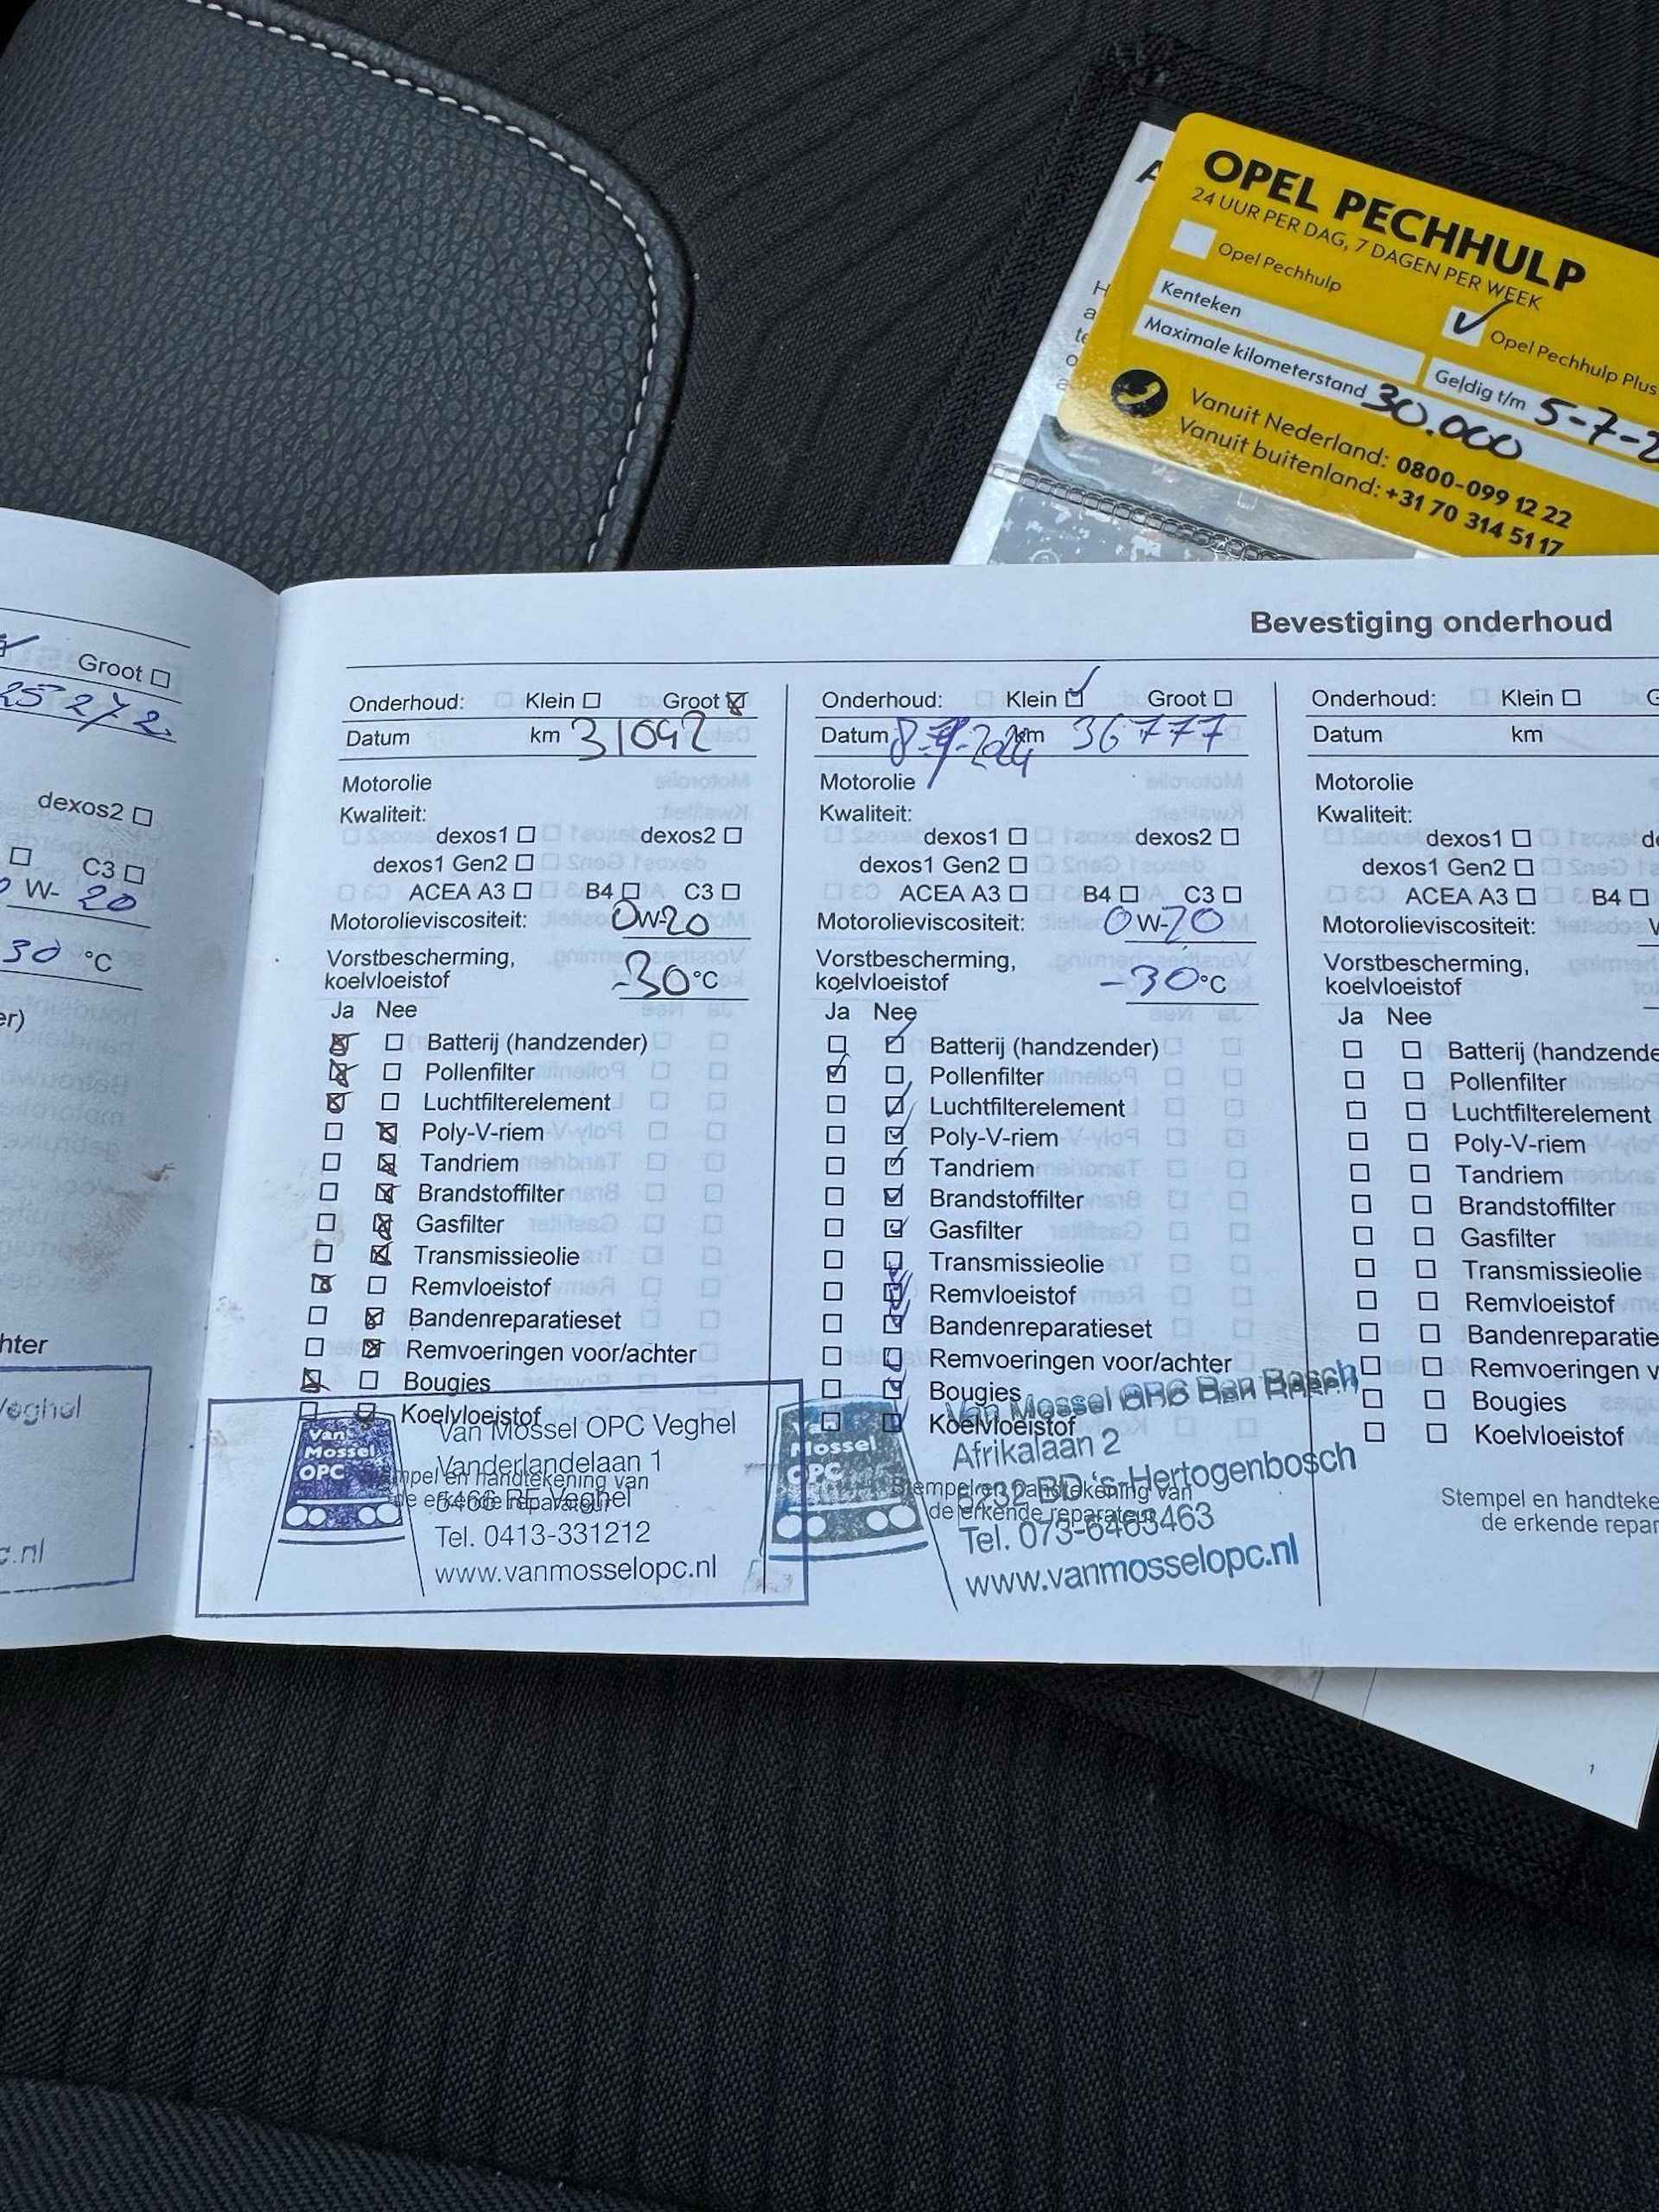 OPEL PECHHULP
24 UUR PER DAG, 7 DAGEN PER WEEK
Opel Pechhulp
Opel Pechhulp Plus
Kenteken
Maximale kilometerstand 30.000
Geldig t/m 5-7-2
Vanuit Nederland: 0800-099 12 22
Vanuit buitenland: +31 70 314 51 17
Groot
25 272
dexos2
C3
W- 20
30 °C
er)
hter
Veghel
c.nl
Bevestiging onderhoud
Onderhoud: Klein Groot
Datum km 31092
Motorolie
Kwaliteit:
dexos1 dexos2
dexos1 Gen2
ACEA A3 B4 C3
Motorolieviscositeit: 0W-20
Vorstbescherming,
koelvloeistof -30°C
Ja Nee
Batterij (handzender)
Pollenfilter
Luchtfilterelement
Poly-V-riem
Tandriem
Brandstoffilter
Gasfilter
Transmissieolie
Remvloeistof
Bandenreparatieset
Remvoeringen voor/achter
Bougies
Koelvloeistof
Van
Mossel
OPC
Van Mossel OPC Veghel
Vanderlandelaan 1
Stempel en handtekening van
de erkende reparateur
Veghel
Tel. 0413-331212
www.vanmosselopc.nl
Onderhoud: Klein Groot
Datum km 36777
Motorolie
Kwaliteit:
dexos1 dexos2
dexos1 Gen2
ACEA A3 B4 C3
Motorolieviscositeit: 0W-20
Vorstbescherming,
koelvloeistof -30°C
Ja Nee
Batterij (handzender)
Pollenfilter
Luchtfilterelement
Poly-V-riem
Tandriem
Brandstoffilter
Gasfilter
Transmissieolie
Remvloeistof
Bandenreparatieset
Remvoeringen voor/achter
Bougies
Koelvloeistof
Mossel
OPC
Van Mossel OPC Den Bosch
Afrikalaan 2
5232 BD 's-Hertogenbosch
Stempel en handtekening van
de erkende reparateur
Tel. 073-6463463
www.vanmosselopc.nl
Onderhoud: Klein G
Datum km
Motorolie
Kwaliteit:
dexos1 de
dexos1 Gen2
ACEA A3 B4
Motorolieviscositeit: W
Vorstbescherming,
koelvloeistof
Ja Nee
Batterij (handzende
Pollenfilter
Luchtfilterelement
Poly-V-riem
Tandriem
Brandstoffilter
Gasfilter
Transmissieolie
Remvloeistof
Bandenreparatie
Remvoeringen v
Bougies
Koelvloeistof
Stempel en handteke
de erkende repar
1